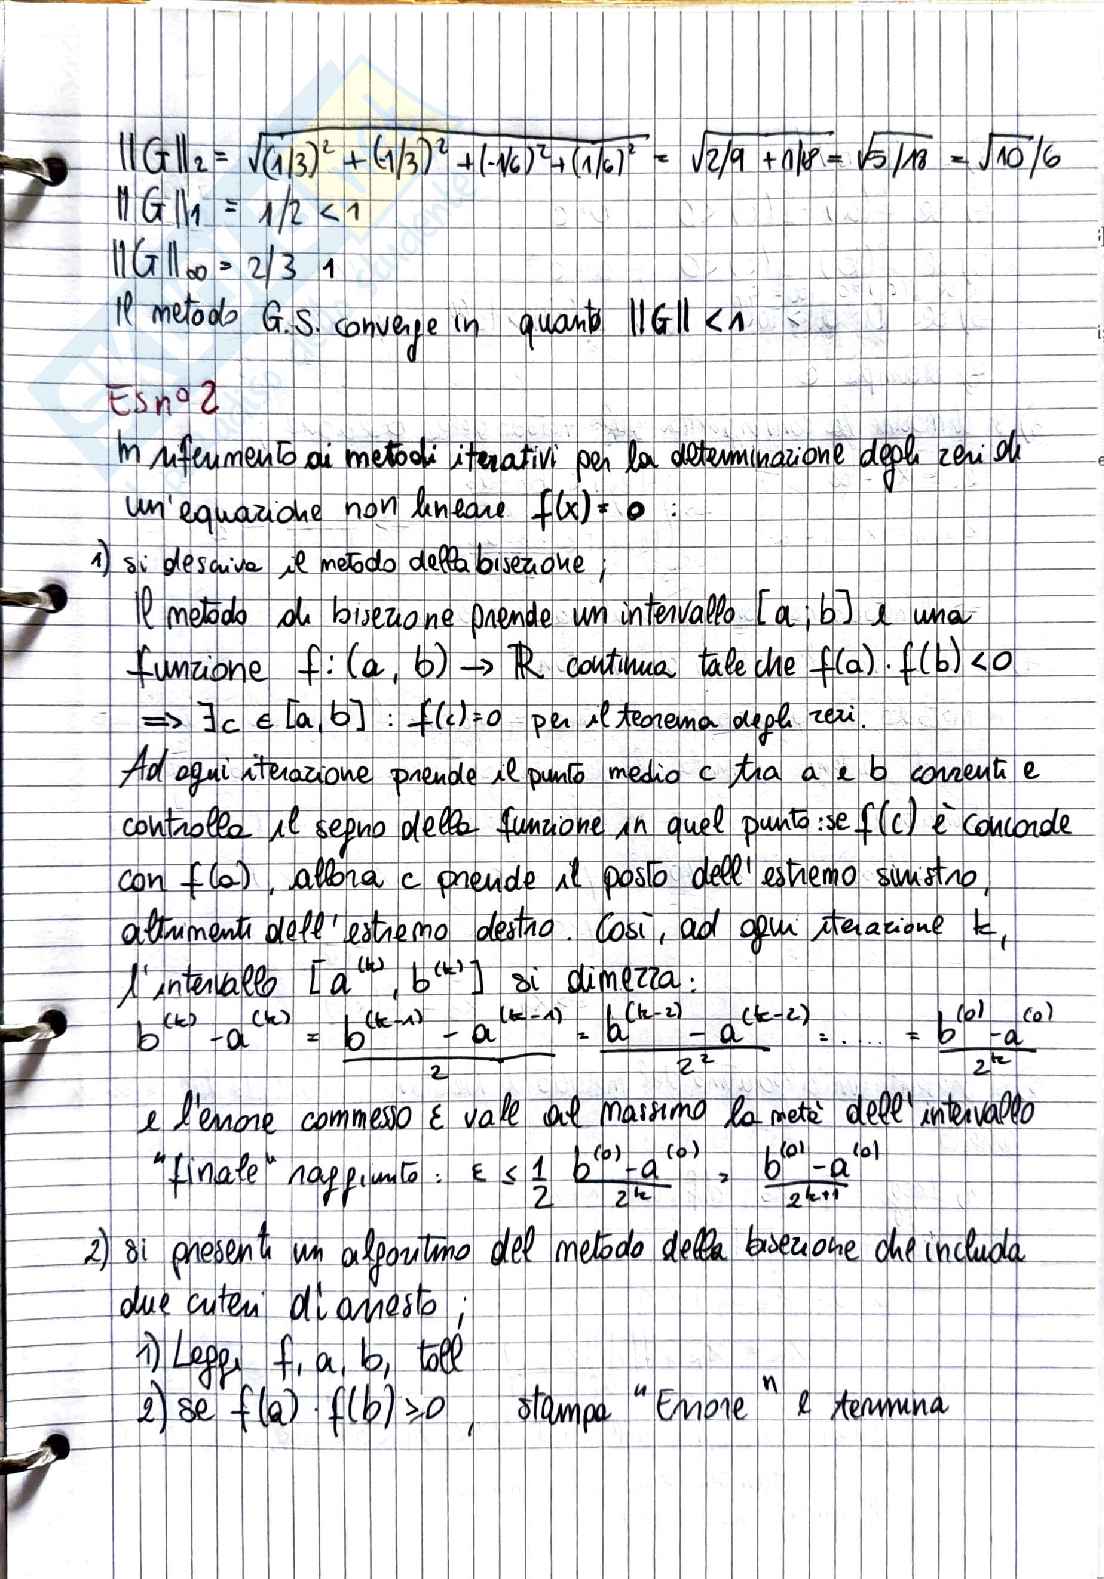 ||G||₂ = √((1/3)² + (-1/3)² + (-1/6)² + (1/6)²) = √(2/9 + 1/18) = √(5/18) = √10/6
||G||₁ = 1/2 < 1
||G||∞ = 2/3 1
Il metodo G.S. converge in quanto ||G|| < 1
Es n° 2
In riferimento ai metodi iterativi per la determinazione degli zeri di
un'equazione non lineare f(x) = 0 :
1) si descriva il metodo della bisezione ;
Il metodo di bisezione prende un intervallo [a ; b] e una
funzione f : (a, b) → ℝ continua tale che f(a) · f(b) < 0
⇒ ∃ c ∈ [a, b] : f(c) = 0 per il teorema degli zeri.
Ad ogni iterazione prende il punto medio c tra a e b correnti e
controlla il segno della funzione in quel punto : se f(c) è concorde
con f(a), allora c prende il posto dell'estremo sinistro,
altrimenti dell'estremo destro. Così, ad ogni iterazione k,
l'intervallo [a^(k), b^(k)] si dimezza :
b^(k) - a^(k) = (b^(k-1) - a^(k-1))/2 = (b^(k-2) - a^(k-2))/2² = .... = (b^(0) - a^(0))/2^k
e l'errore commesso ε vale al massimo la metà dell'intervallo
"finale" raggiunto : ε ≤ 1/2 (b^(0) - a^(0))/2^k = (b^(0) - a^(0))/2^(k+1)
2) si presenti un algoritmo del metodo della bisezione che includa
due criteri di arresto ;
1) Leggi f, a, b, toll
2) se f(a) · f(b) ≥ 0 , stampa "Errore" e termina